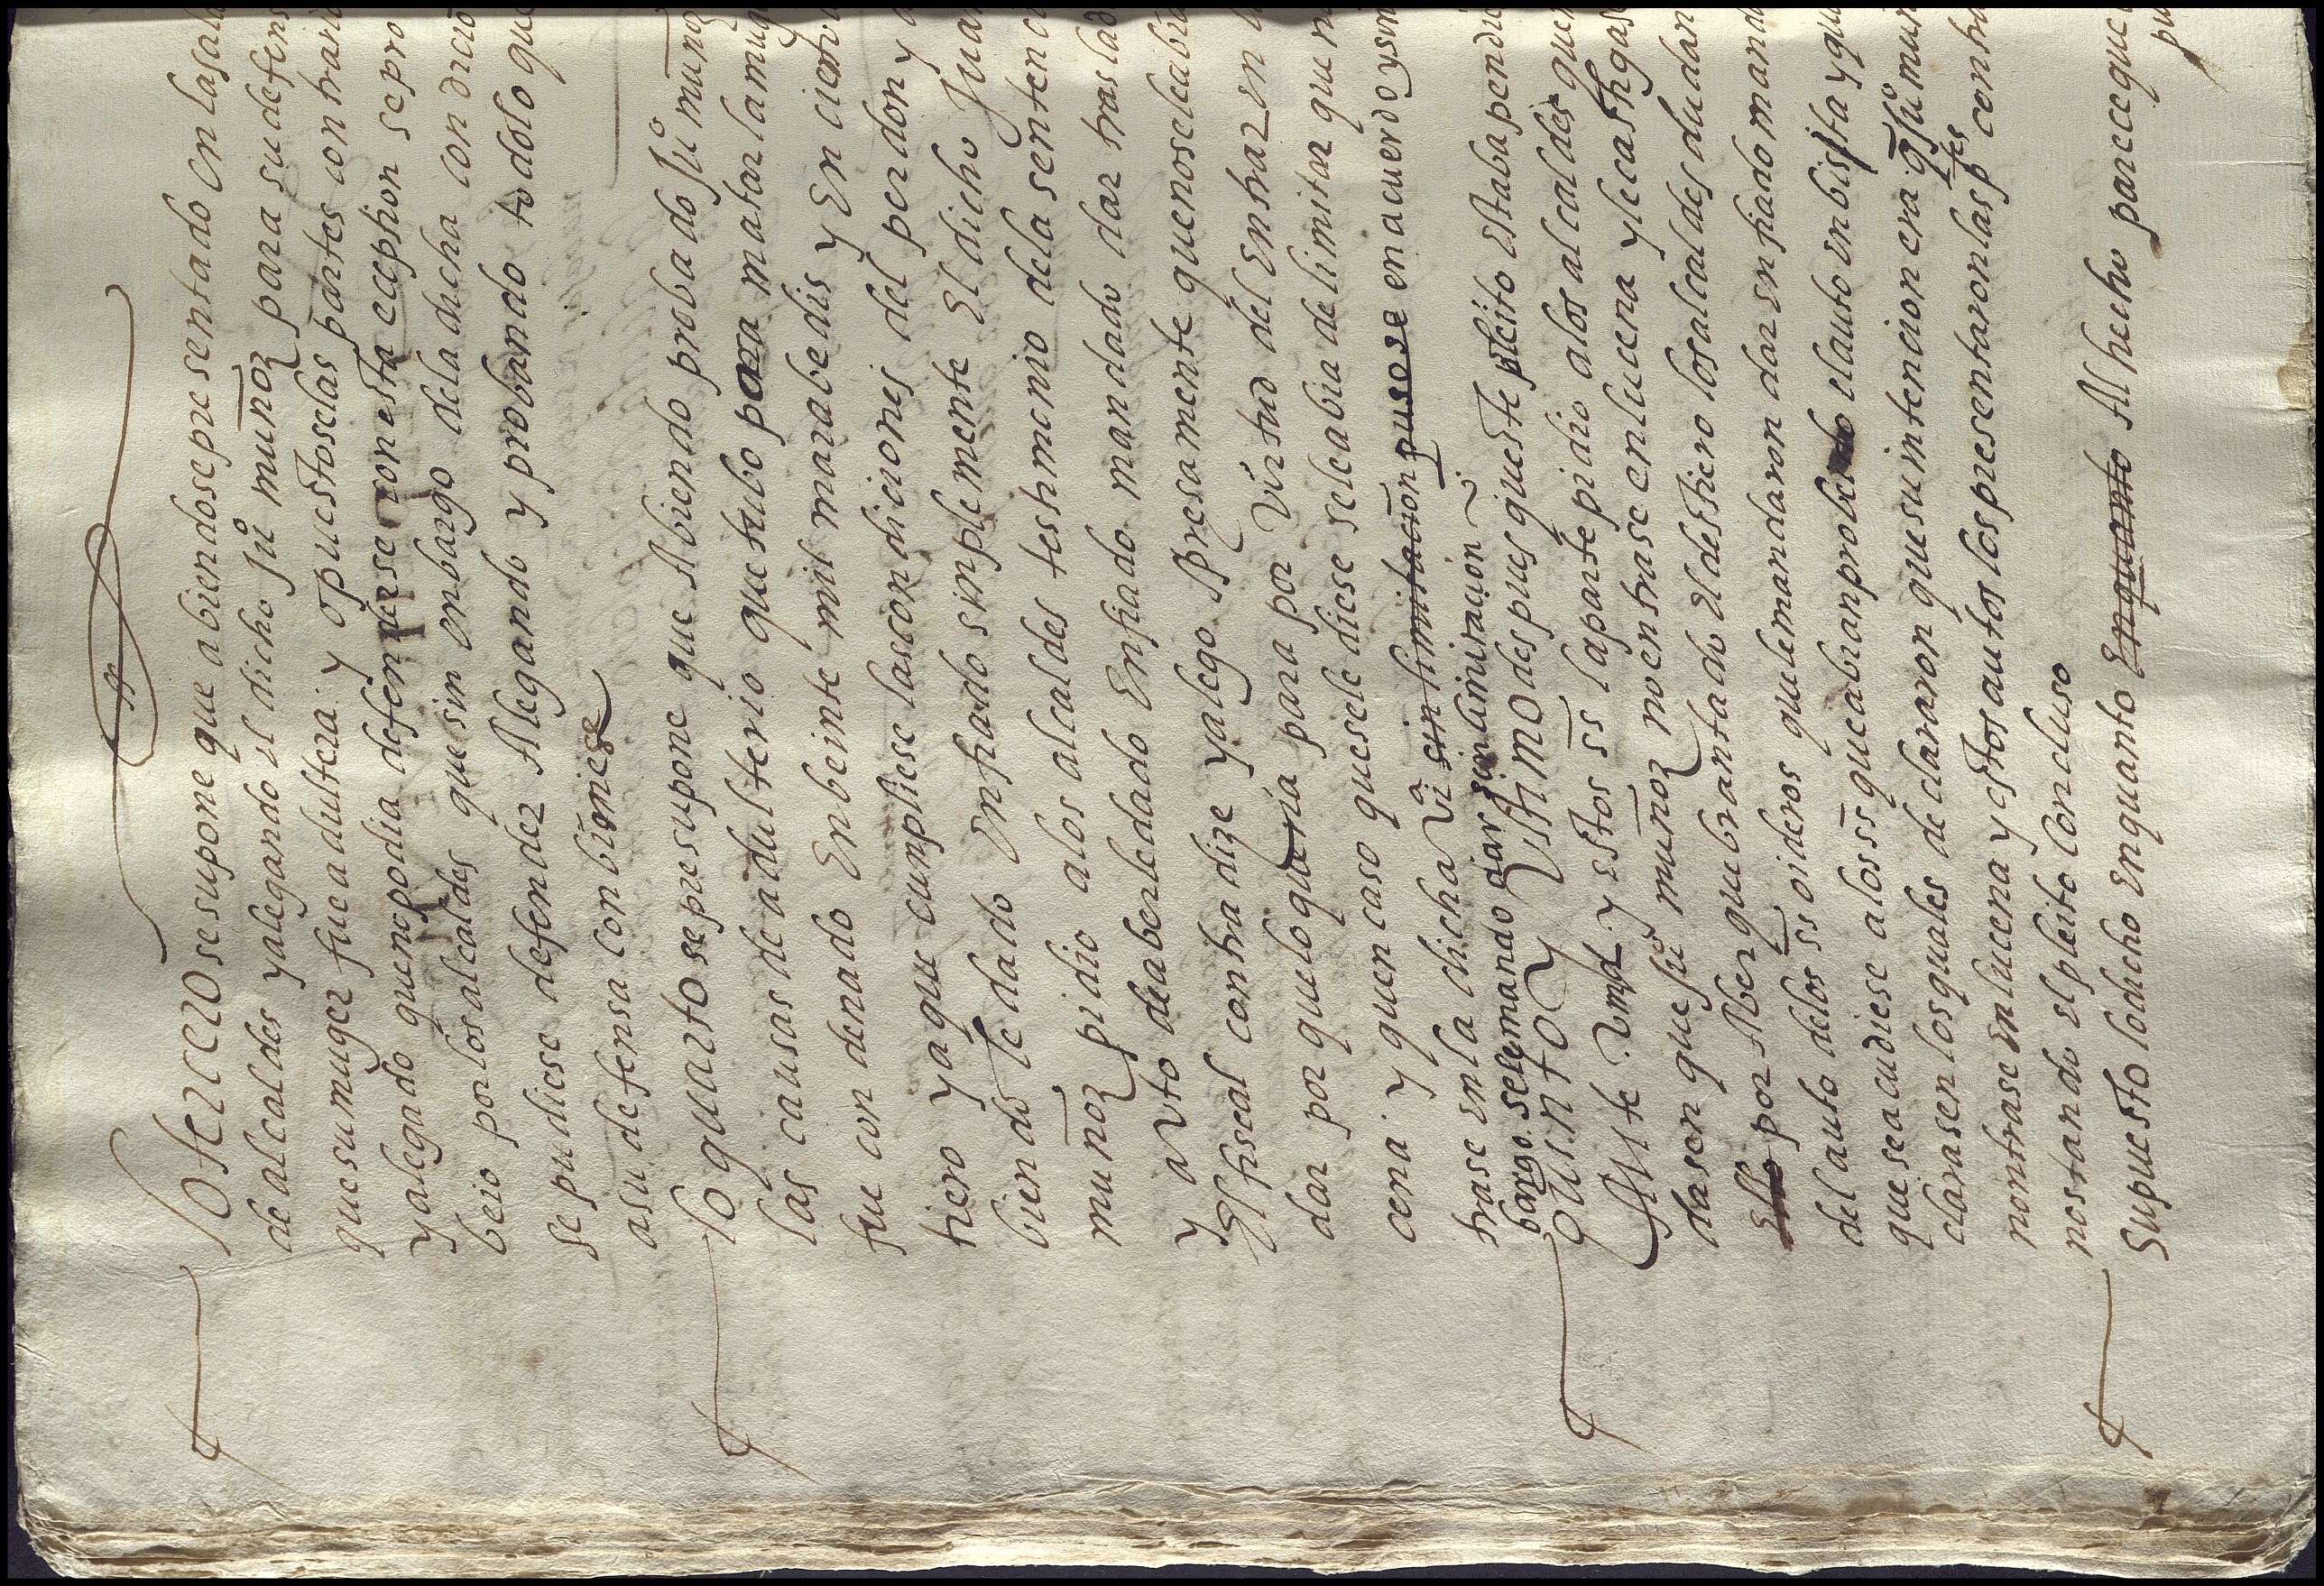 lo tercero se supone que abiendose presentado en la sala
de alcaldes y alegando el dicho Juº muñoz para su defens
que su muger fue adultera y opuestoselas partes contrari
y alegado que no podia defenderse con esta eception se pro
beio por los alcaldes que sin enbargo de la dicha condicio
se pudiese defender Alegando y probando todo lo que
a su defensa conbiniese
lo quarto se presupone que Abiendo probado Juº muñoz
las causas de adulterio que tubo para matar la mug
fue condenado En beinte mil marabedis y En cientu
tiero y a que cunpliese las condiciones del perdon y a
biendo le dado En fiado sinplemente El dicho Jua
muñoz pidio a los alcaldes testimonio de la sentenci
y auto de aberle dado En fiado mandado dar traslad
El fiscal contradize y alego Spresamente que no se le abia
dar por que lo queria para por Virtud del Entrar en l
cena y que en caso que se le diese se le abia de limitar que n
trase en la dicha Vª sin limitacion pusose en acuerdo y sin
bargo se le mando dar sin limitacion
quinto y Ultimo despues que este pleito Estaba pendie
Ante Vmd. y estos ss la parte pidio a los alcaldes que
dasen que Juº muñoz no entrase en lucena y le castigase
Ello por Aber quebrantado El destiero los alcaldes dudan
del auto de los ss oideros que le mandaron dar en fiado mand
que se acudiese a los ss que abian probeido el auto en bista y que
clarasen los quales declararon que su intencion era q Juº muñ
no ntrase en lucena y estos autos los presentaron las ptes contra
nos tando el pleito Concluso
Supuesto lo dicho En quanto En quanto Al hecho parece que
pu